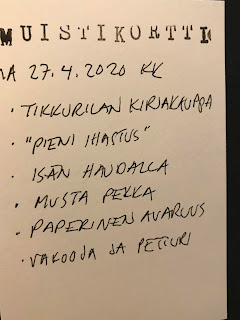 MUISTIKORTTI
MA 27.4.2020 KK
• TIKKURILAN KIRJAKAUPPA
• "PIENI IHASTUS"
• ISÄN HAUDALLA
• MUSTA PEKKA
• PAPERINEN AVARUUS
• VAKOOJA JA PETTURI